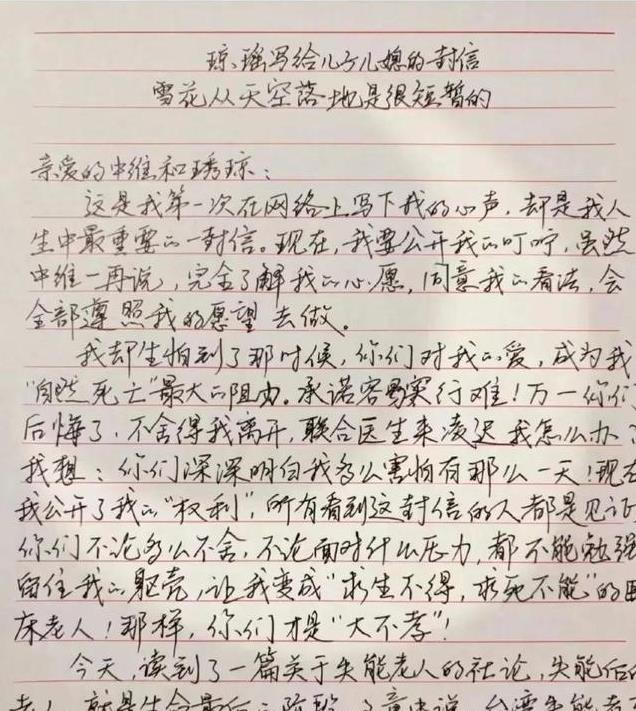 琼瑶写给儿子儿媳的封信
雪花从天空落地是很短暂的
亲爱的中维和琇琼：
这是我第一次在网络上写下我的心声，却是我人
生中最重要的一封信。现在，我要公开我的叮咛，虽然
中维一再说，完全了解我的心愿，同意我的看法，会
全部遵照我的愿望去做。
我却生怕到了那时候，你们对我的爱，成为我
“自然死亡”最大的阻力。承诺容易实行难！万一你们
后悔了，不舍得我离开，联合医生来凌迟我怎么办？
我想：你们深深明白我多么害怕有那么一天！现在
我公开了我的“权利”，所有看到这封信的人都是见证
你们不论多么不舍，不论面对什么压力，都不能勉强
留住我的躯壳，让我变成“求生不得，求死不能”的卧
床老人！那样，你们才是“大不孝”！
今天，读到了一篇关于失能老人的社论，失能后的